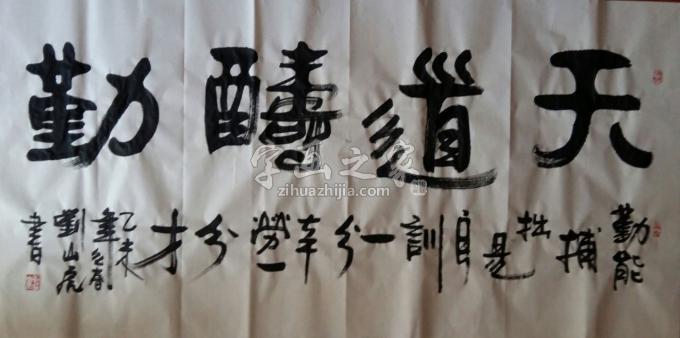 天道醻勤
勤能補拙是良訓一分辛勞一分才
乙未
年之春
劉山虎
書
字画之家
zihuazhijia.com